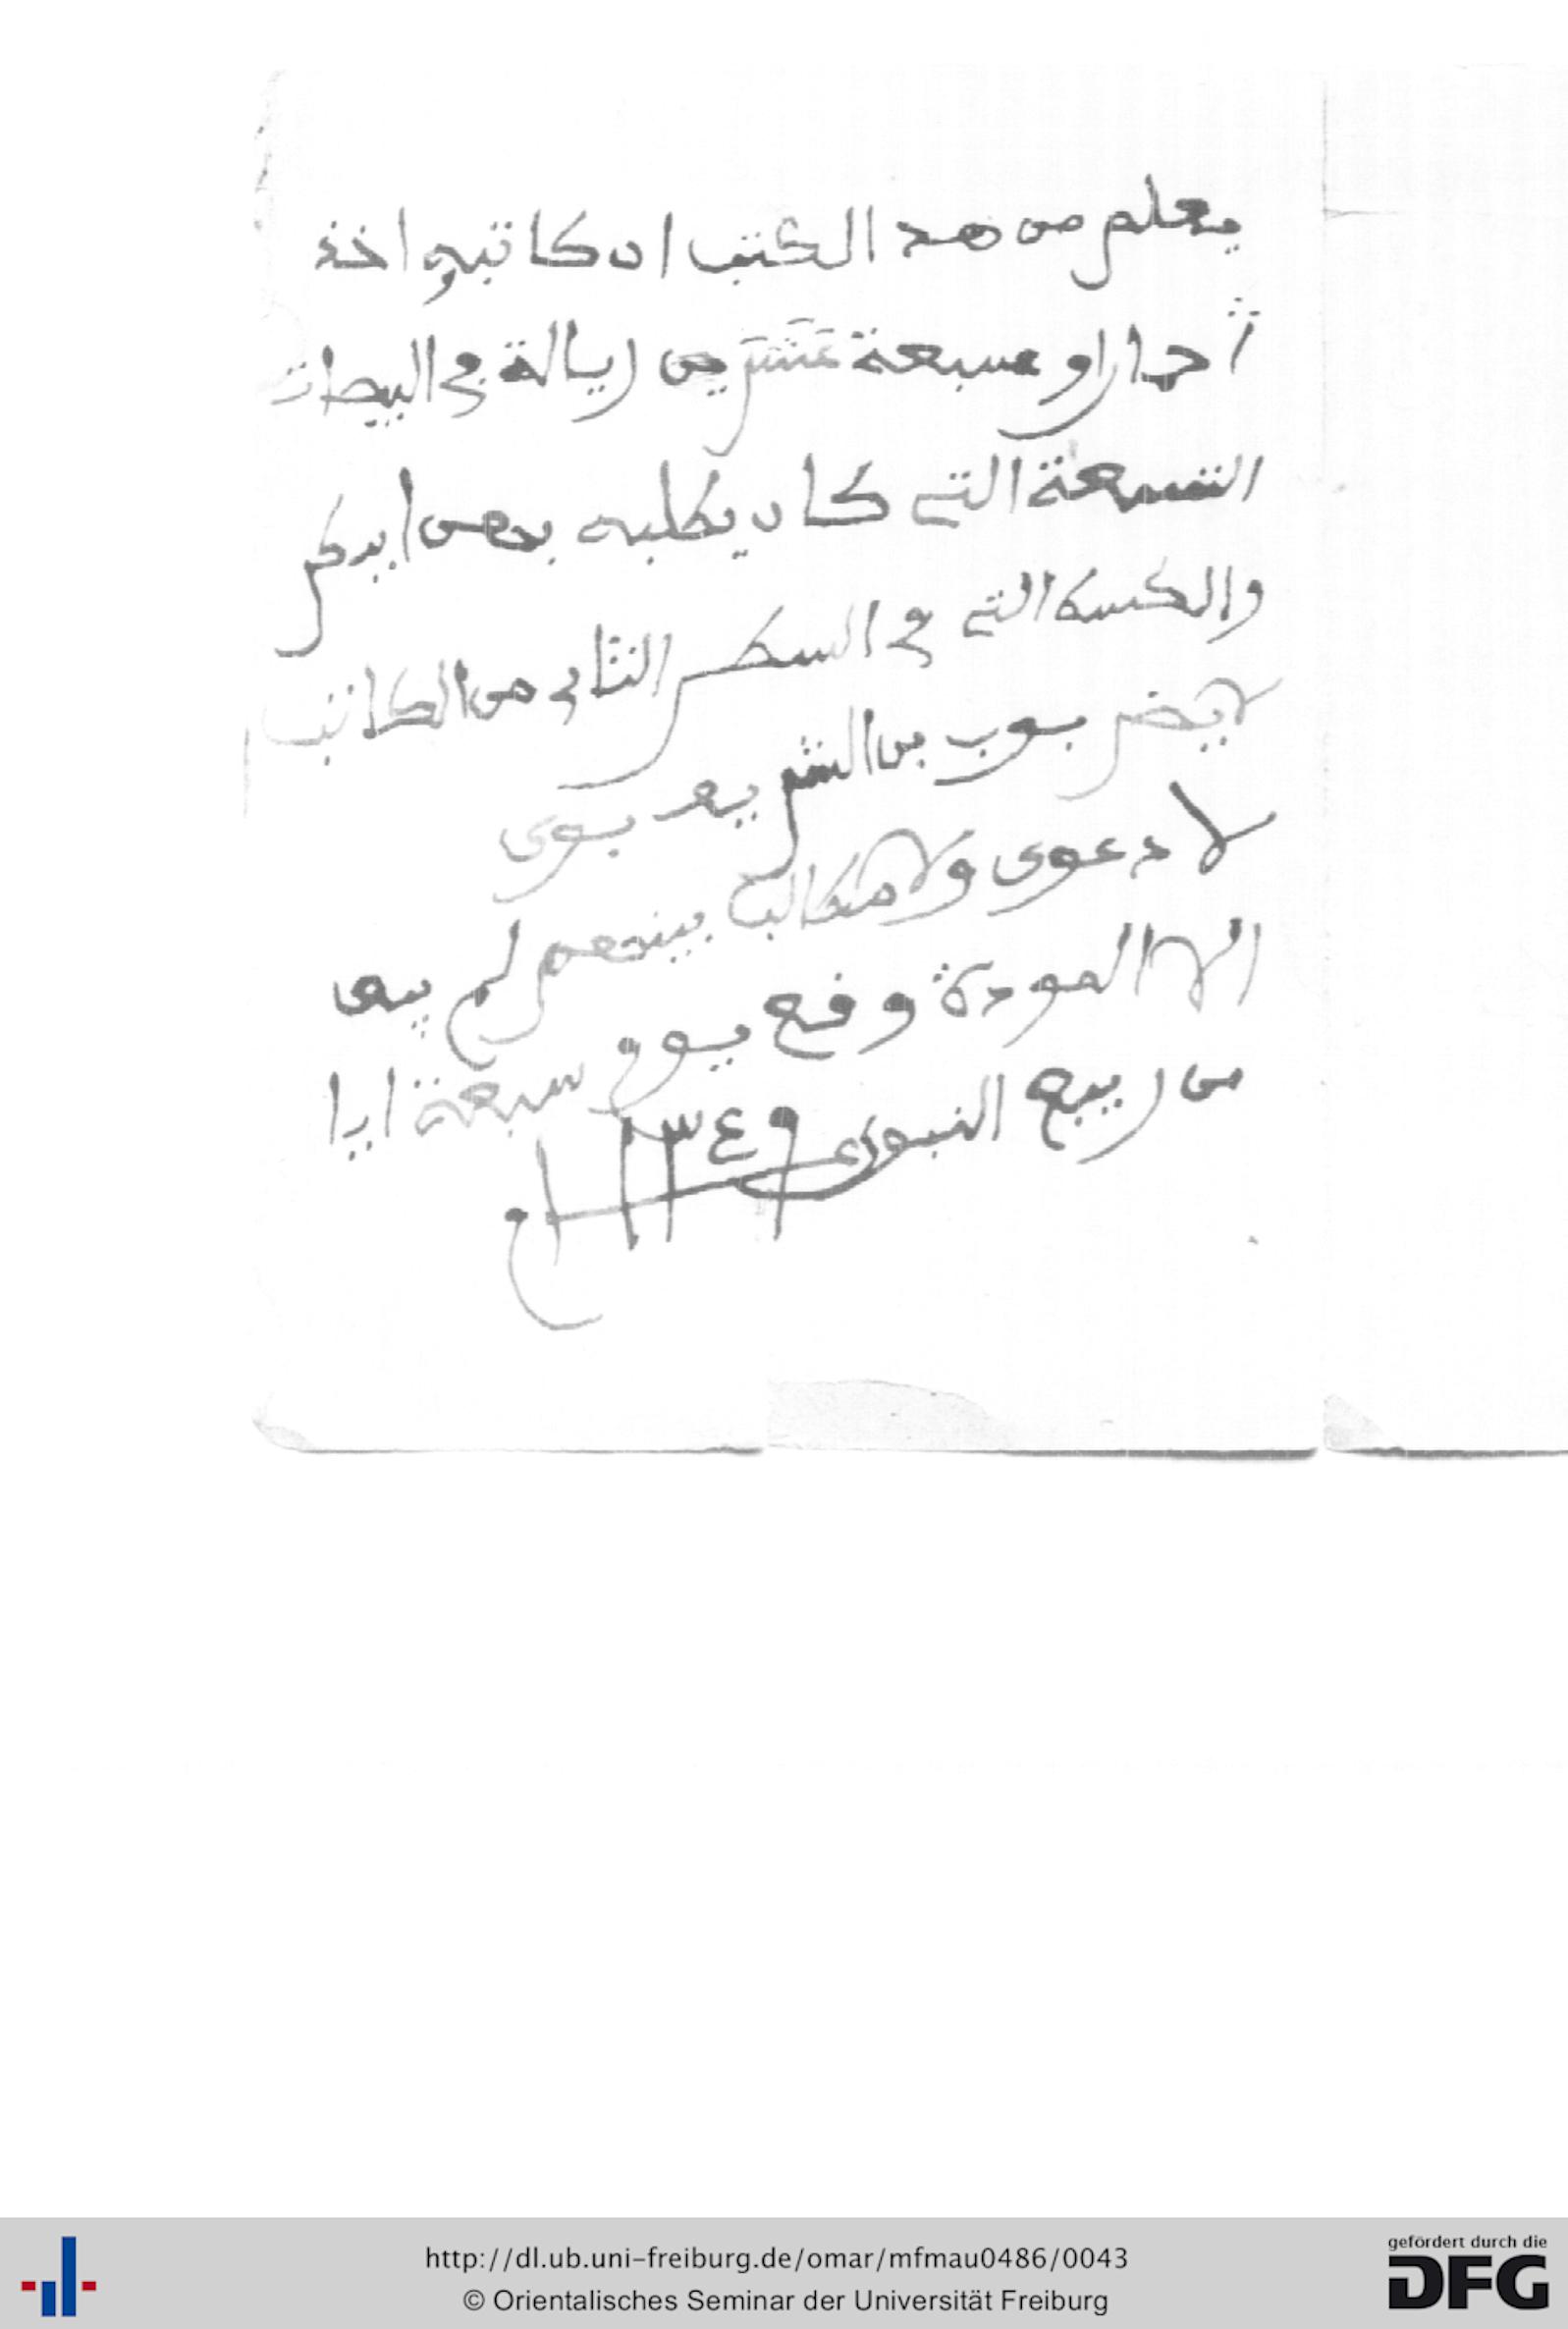 يعلم من هد الكتب ان كاتبه اخذ
سبعة عشر من ريالة في البيصات
التسعة التي كان يطلبه بهن ابيكر
والكسكة التي في السطر الثاني من الكاتب
لا يضر بوب بن الشريف بوى
لا دعوى ولا مطالب بينهم لم يبق
الا المودة وقع يوم سبعة ايا
من ربيع النبوي ١٣٤٩
http://dl.ub.uni-freiburg.de/omar/mfmau0486/0043
© Orientalisches Seminar der Universität Freiburg
gefördert durch die
DFG